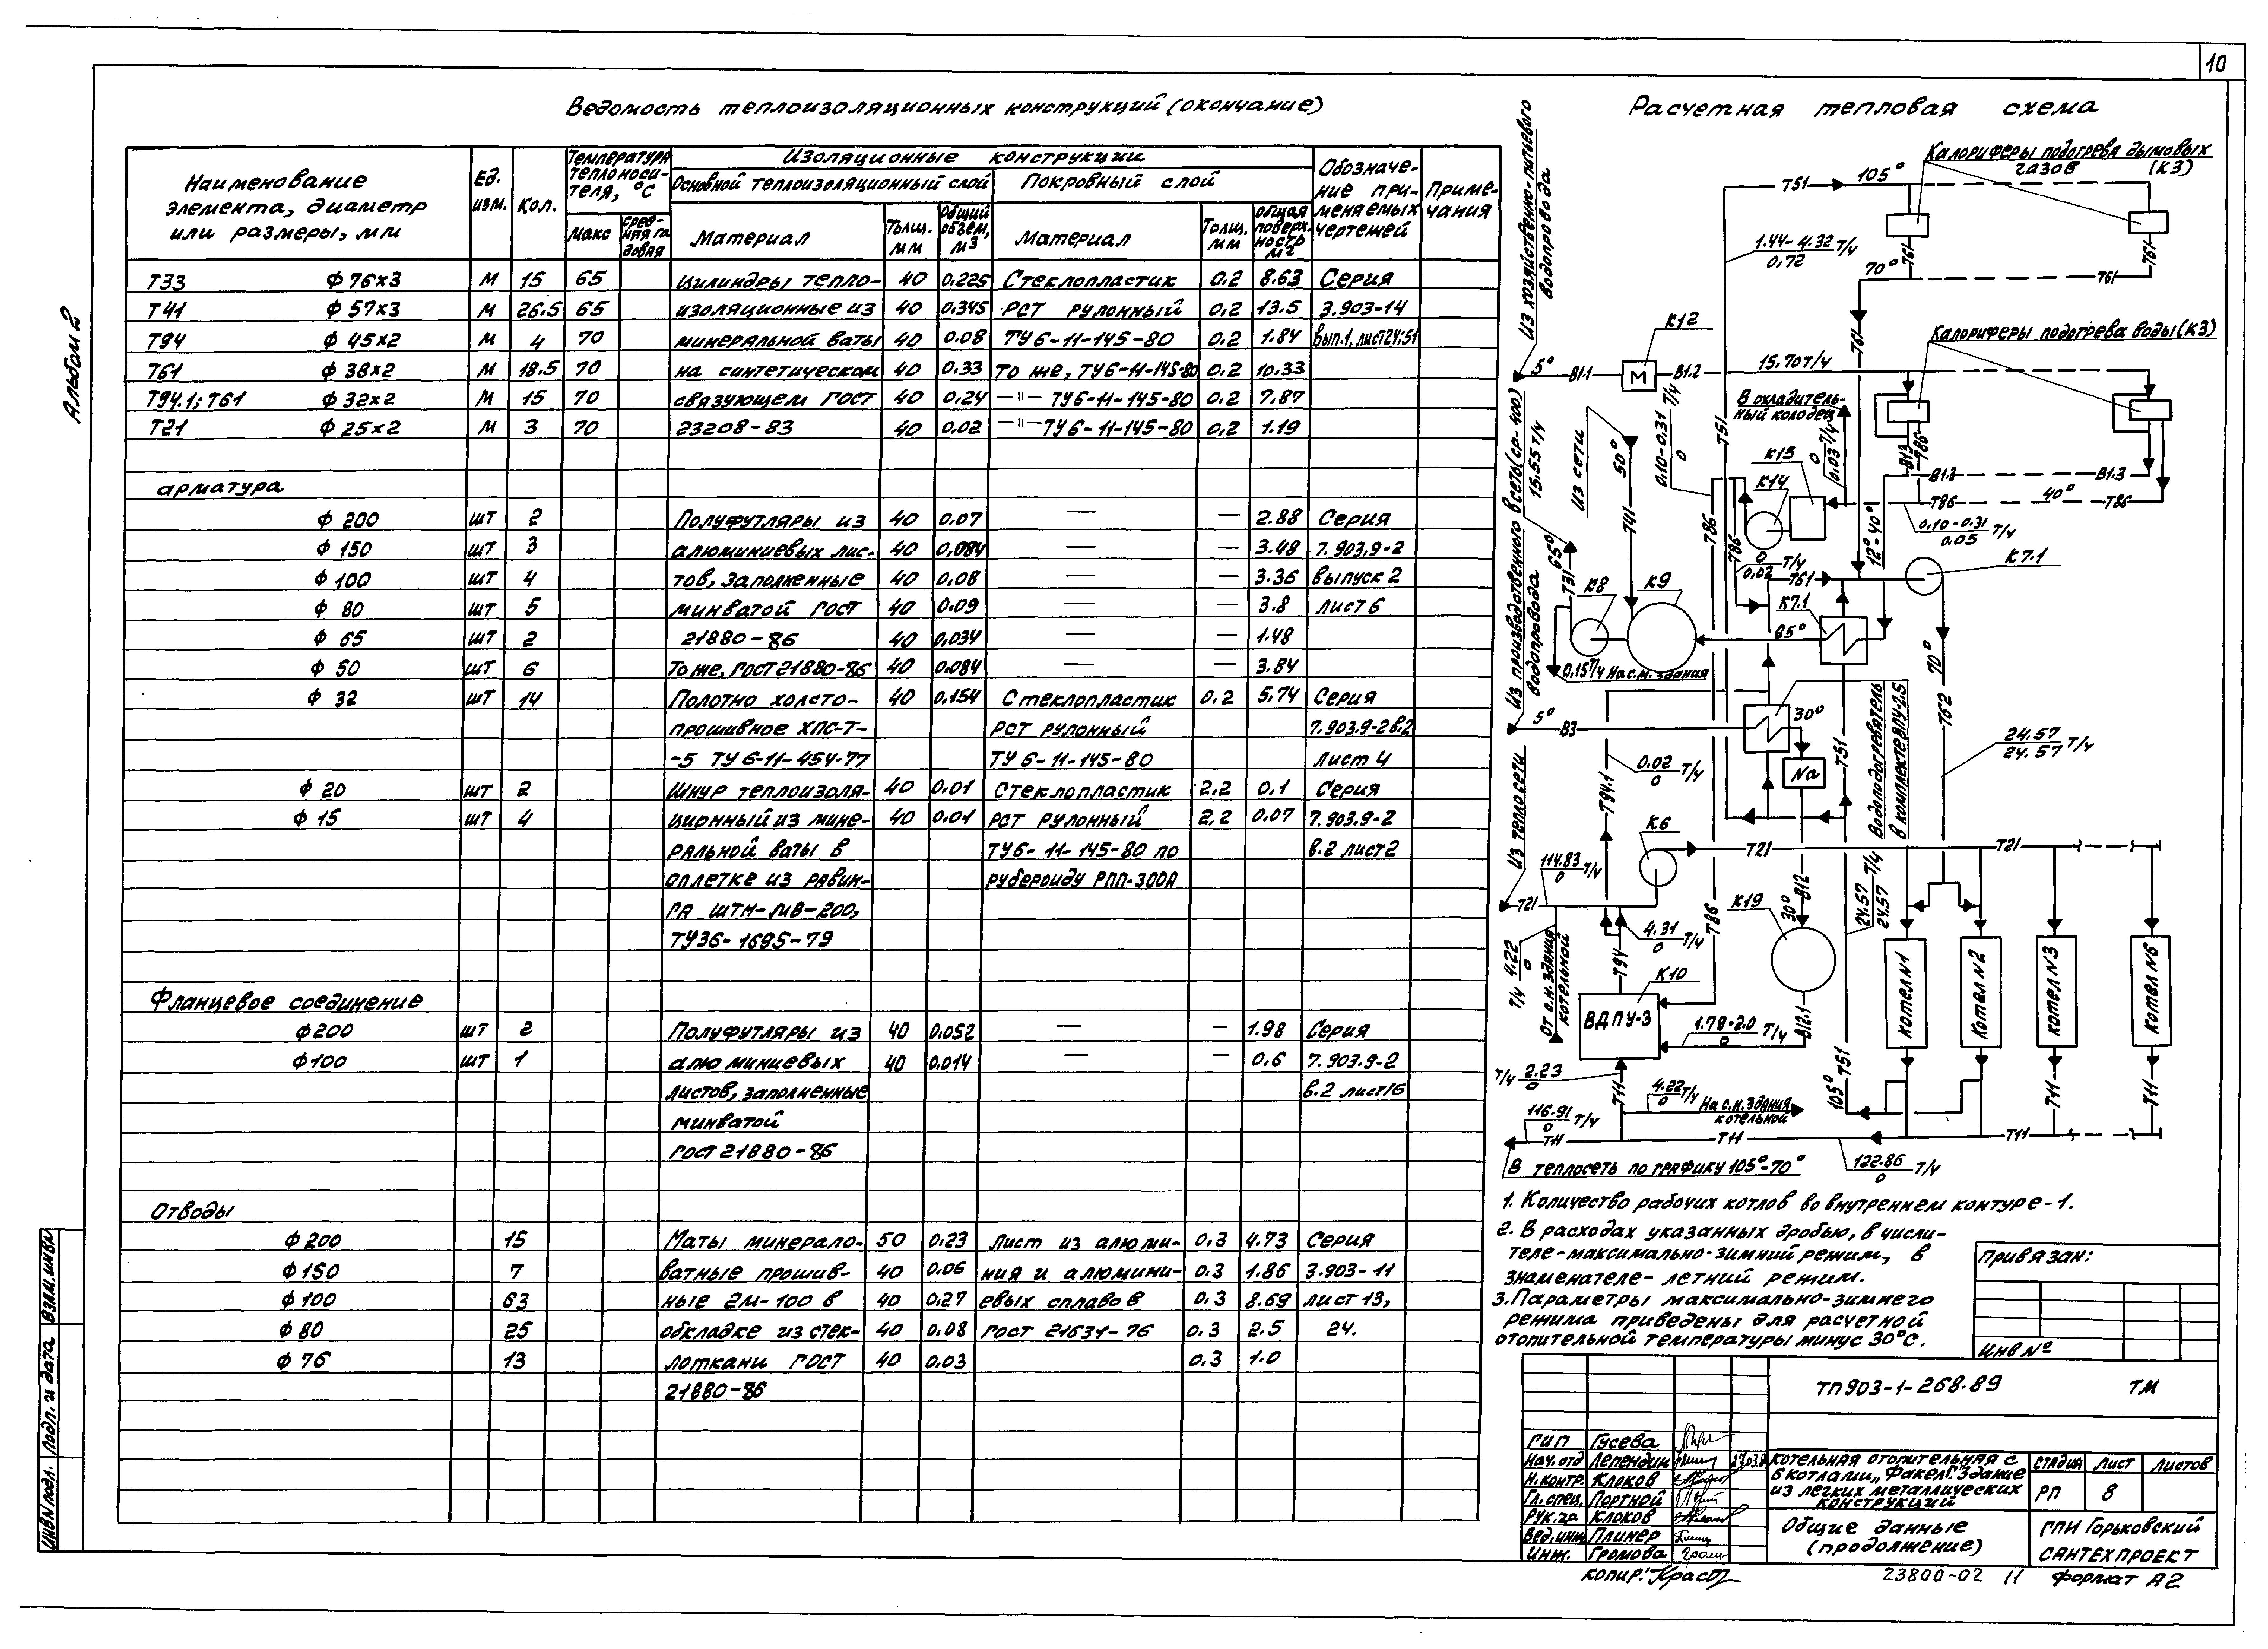 10
Альбом 2
Ведомость теплоизоляционных конструкций (окончание)
Наименование элемента, диаметр или размеры, мм | Ед. изм. | Кол. | Температура теплоносителя, °С | Изоляционные конструкции | Обозначение применяемых чертежей | Примечания
Макс | Средняя годовая | Основной теплоизоляционный слой | Покровный слой
Материал | Толщ. мм | Общий объем, м3 | Материал | Толщ. мм | Общая поверхность м2
Т33 ф 76×3 м 15 65 Цилиндры тепло- 40 0.225 Стеклопластик 0.2 8.63 Серия
Т41 ф 57×3 м 26.5 65 изоляционные из 40 0.345 РСТ рулонный 0.2 13.5 3.903-14
Т94 ф 45×2 м 4 70 минеральной ваты 40 0.08 ТУ 6-11-145-80 0.2 1.84 Вып.1, лист 24; 51
Т61 ф 38×2 м 18.5 70 на синтетическом 40 0.33 То же, ТУ 6-11-145-80 0.2 10.33
Т94.1; Т61 ф 32×2 м 15 70 связующем ГОСТ 40 0.24 —"— ТУ 6-11-145-80 0.2 7.87
Т21 ф 25×2 м 3 70 23208-83 40 0.02 —"— ТУ 6-11-145-80 0.2 1.19
арматура
ф 200 шт 2 Полуфутляры из 40 0.07 — — 2.88 Серия
ф 150 шт 3 алюминиевых лис- 40 0.084 — — 3.48 7.903.9-2
ф 100 шт 4 тов, заполненные 40 0.08 — — 3.36 выпуск 2
ф 80 шт 5 минватой ГОСТ 40 0.09 — — 3.8 лист 6
ф 65 шт 2 21880-86 40 0.034 — — 1.48
ф 50 шт 6 То же, ГОСТ 21880-86 40 0.084 — — 3.84
ф 32 шт 14 Полотно холсто- 40 0.154 Стеклопластик 0.2 5.74 Серия
прошивное ХПС-Т- РСТ рулонный 7.903.9-2 в.2
-5 ТУ 6-11-454-77 ТУ 6-11-145-80 лист 4
ф 20 шт 2 Шнур теплоизоля- 40 0.01 Стеклопластик 2.2 0.1 Серия
ф 15 шт 4 ционный из мине- 40 0.01 РСТ рулонный 2.2 0.07 7.903.9-2
ральной ваты в ТУ 6-11-145-80 по в.2 лист 2
оплетке из равин- рубероиду РПП-300А
га ШТН-МВ-200,
ТУ36-1695-79
Фланцевое соединение
ф 200 шт 2 Полуфутляры из 40 0.052 — — 1.98 Серия
ф 100 шт 1 алюминиевых 40 0.014 — — 0.6 7.903.9-2
листов, заполненные в.2 лист 16
минватой
ГОСТ 21880-86
Отводы
ф 200 15 Маты минерало- 50 0.23 Лист из алюми- 0.3 4.73 Серия
ф 150 7 ватные прошив- 40 0.06 ния и алюмини- 0.3 1.86 3.903-11
ф 100 63 ные 2М-100 в 40 0.27 евых сплавов 0.3 8.69 лист 13,
ф 80 25 обкладке из стек- 40 0.08 ГОСТ 21631-76 0.3 2.5 24.
ф 76 13 лоткани ГОСТ 40 0.03 0.3 1.0
21880-86
Расчетная тепловая схема
Калориферы подогрева дымовых газов (К3)
Т51 105°
Т61 Т61
1.44-4.32 / 0.72 т/ч
70° Т61
Т61
Калориферы подогрева воды (К3)
Из хозяйственно-питьевого водопровода
К12
5° В1.1 М В1.2 15.70 т/ч
Т51
В охладительный колодец
0 / 0.03 т/ч
В1.3 Т86
В1.3 В1.3
Т86 40° Т86
0.10-0.31 / 0.05 т/ч
0.10-0.31 / 0 т/ч
К15
К14
Из сети
50°
Т41
Т86
Т86
0 / 0.02 т/ч
12°-40°
Из производственного водопровода
Всего (ср-400) 15.55 т/ч
65°
Т31
К8
К9
Т61
К7.1
К7.1
65°
0.15 т/ч На с.н. здания
70°
Т62
5° В3
30°
Na
Т51
Водоподогреватель в комплекте ВПУ-2.5
24.57 / 24.57 т/ч
0.02 / 0 т/ч
Т94.1
Из теплосети
114.83 / 0 т/ч
К6
Т21 Т21
Т21
В12
30°
К19
24.57 / 24.57 т/ч
4.22 / 0 т/ч
От с.н. здания котельной
4.31 / 0 т/ч
Т94
Т86
К10
ВДПУ-3
1.79-2.0 / 0 т/ч
В12.1
Котел №1
Котел №2
Котел №3
Котел №6
2.23 / 0 т/ч
Т11
4.22 / 0 т/ч На с.н. здания котельной
105° Т51
Т11 Т11
116.91 / 0 т/ч
Т11 Т11 Т11
В теплосеть по графику 105°-70°
122.86 / 0 т/ч
1. Количество рабочих котлов во внутреннем контуре-1.
2. В расходах указанных дробью, в числи-
теле-максимально-зимний режим, в
знаменателе-летний режим.
3. Параметры максимально-зимнего
режима приведены для расчетной
отопительной температуры минус 30°С.
Привязан:
Инв №
ТП 903-1-268.89 ТМ
ГИП Гусева
Нач. отд Лепендин
Н. контр. Клоков
Гл. спец. Портной
Рук. гр Клоков
Вед. инж Плинер
Инж. Громова
Котельная отопительная с
6 котлами „Факел". Здание
из легких металлических
конструкций
Стадия Лист Листов
РП 8
Общие данные
(продолжение)
ГПИ Горьковский
САНТЕХПРОЕКТ
копир:
23800-02 11 формат А2
Инв № подл. Подп. и дата Взам. инв №